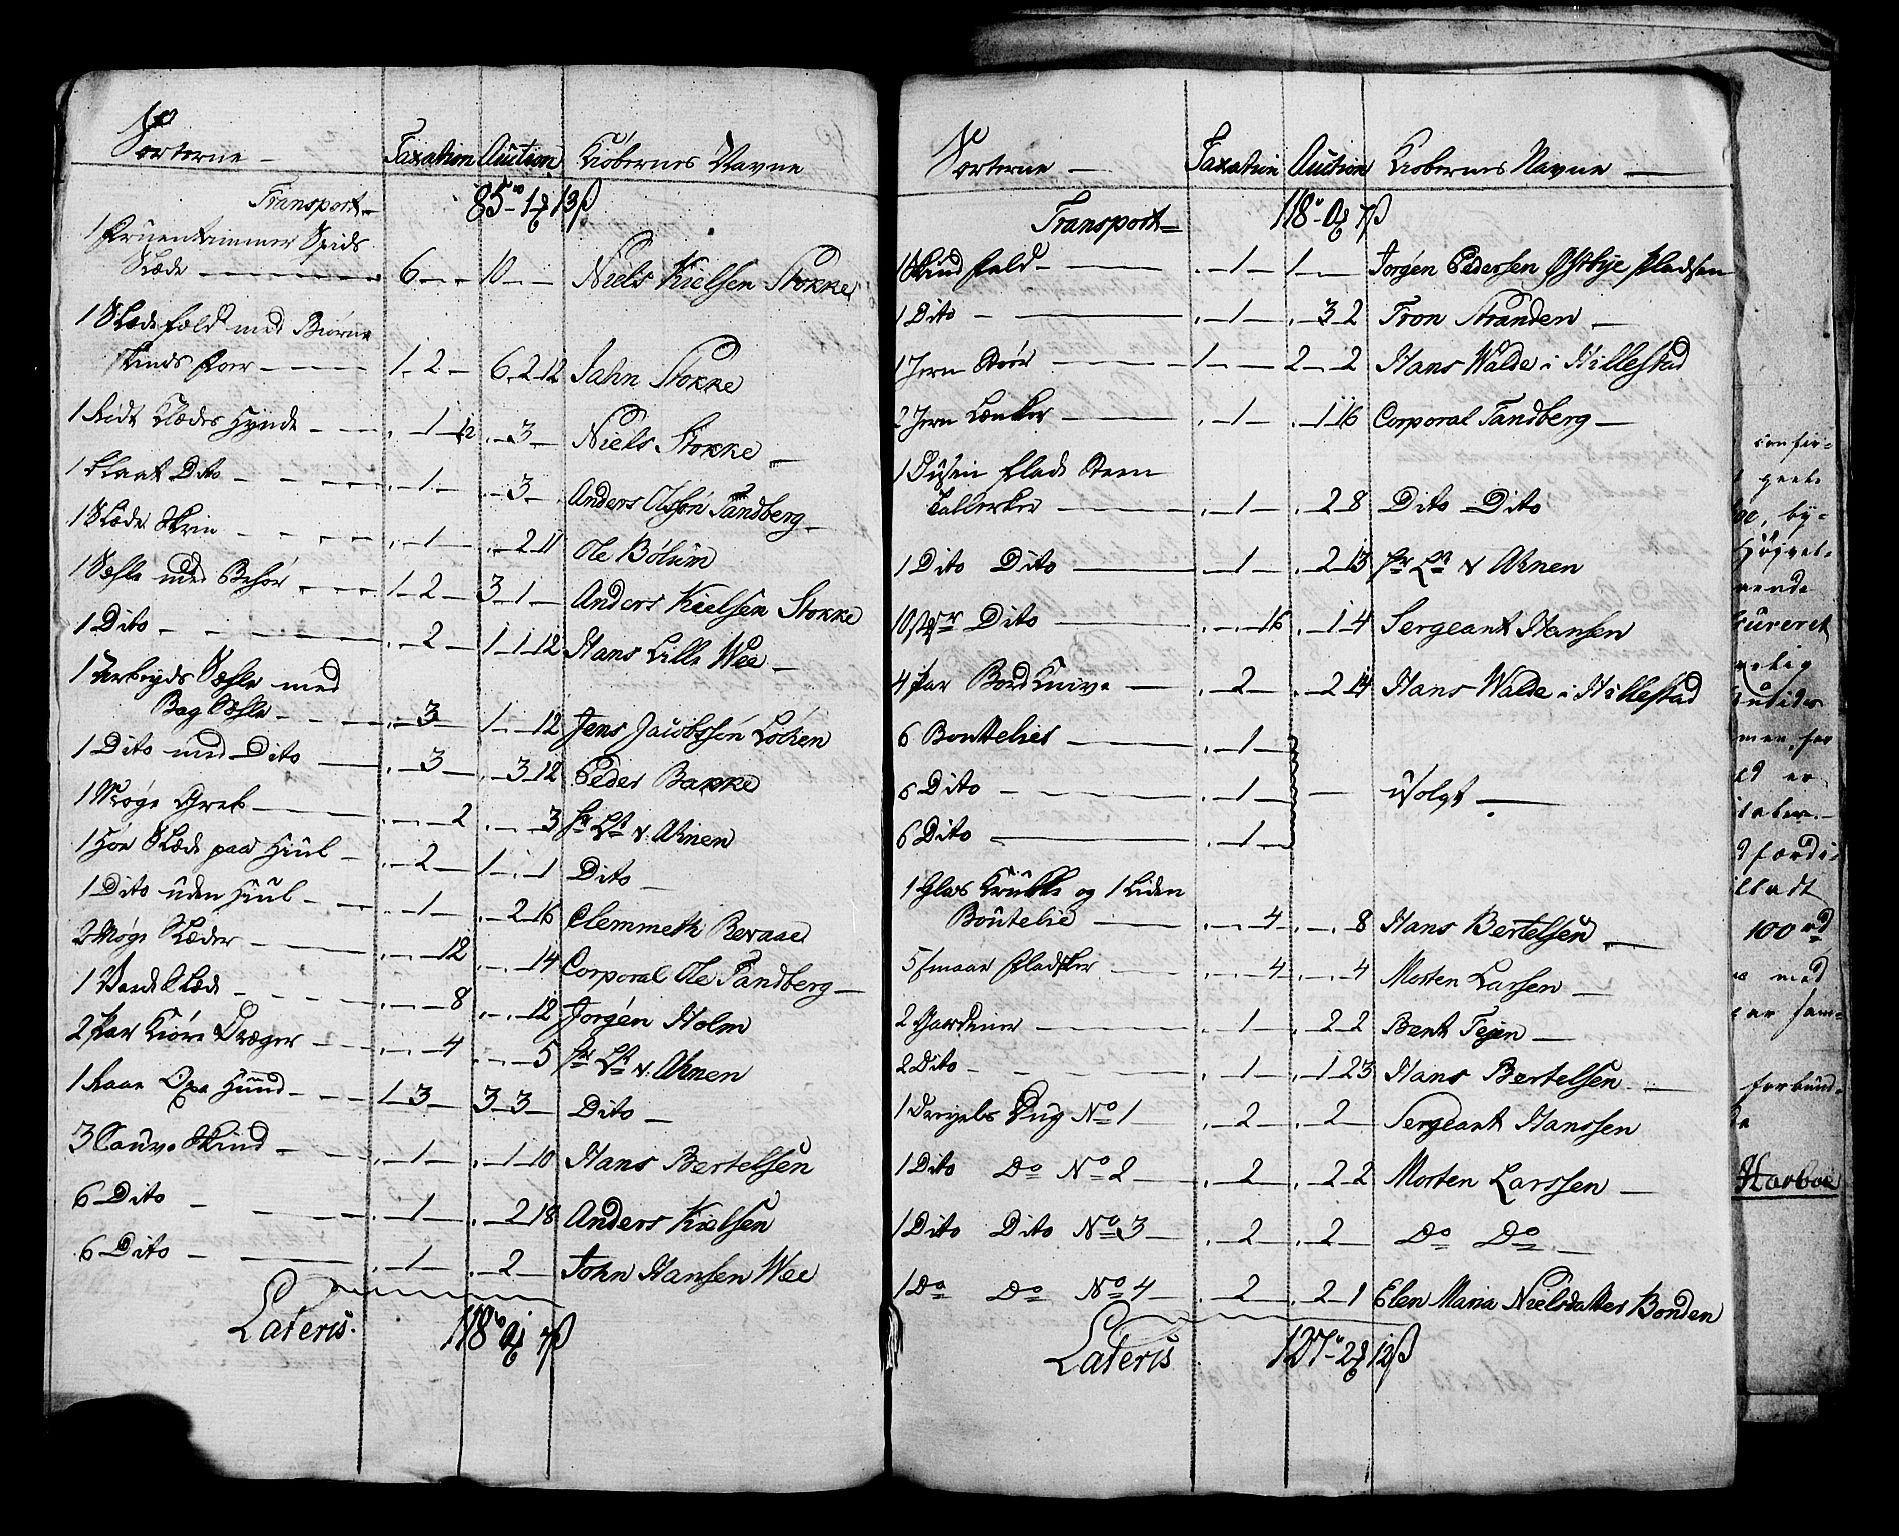 Sorterne — Taxation Auction Kiøbernes Navne
Transport — 85 - 1 - 13ß
1 Fruentimmer Spids
Slæde — 6 — 10 — Niels Kielsen Stokke
1 Slædefæld med Biørne
skinds foer — 1 - 2 — 6 - 2 - 12 Jahn Stokke
1 Rødt Klædes Hynde — 1 - 12 - 3 — Niels Stokke —
1 blaat Dito — 1 — 3 — Anders Olsøn Tandberg —
1 Slæde Skrin — 1 — 2 - 11 Ole Bølum
1 Sæhle med Behør — 1 - 2 — 3 - 1 — Anders Kielsen Stokke
1 Dito — 2 — 1 - 1 - 12 Hans Lille Wee —
1 Arbeyds Sæhle med
Bag Sæhle — 3 — 1 — 12 Jens Jacobssøn Løken
1 Dito med Dito — 3 — 3 - 12 Peder Bakke
1 Møge Greb — 2 — 3 Hr Lt v. Ahnen
1 Høe Slæde paa Hiul — 2 — 1 — 1 Dito —
1 Dito uden Hiul — 1 — 2 - 16 Clemmeth Revaae
2 Møge Slæder — 12 — 14 Corporal Ole Tandberg —
1 Slæde — 8 — 12 Jørgen Holm
2 Par Kiøre Dræger — 4 — 5 Hr Lt v. Ahnen
1 Raae Oxe Huud — 1 - 3 — 3 - 3 — Dito —
3 Saue Skind — 1 — 1 - 10 Hans Bertelsen
6 Dito — 1 — 2 - 18 Anders Kielsen
6 Dito — 1 — 2 — John Hansen Wee
Lateris. 118 - 0 - 7ß
Sorterne — Taxation Auction Kiøbernes Navne —
Transport — 118 - 0 - 7ß
1 Skind fæld — 1 — 1 — Jørgen Pedersen Østbye Pladsen
1 Dito — 1 — 3 - 2 Tron Stranden —
1 Jern Stør — 1 — 2 — 2 Hans Walde i Hillestad
2 Jern Lænker — 1 — 1 - 16 Corporal Tandberg —
1 Dusin flade Steen
Tallerker — 1 — 2 - 8 Dito Dito
1 Dito Dito — 1 — 2 - 13 Hr Lt v Ahnen
10 Dito — 16 - 1 - 4 Sergeant Hansen
4 Par Bord Knive — 2 — 2 - 14 Hans Walde i Hillestad
6 Bouttelier — 1 —
6 Dito — 1 — usolgt —
6 Dito — 1 —
1 Glas Krukke og 1 Liden
Boutelie — 4 — 8 Hans Bertelsen —
5 smaae fladsker — 4 — 4 Morten Larsen —
2 Gardiner — 1 — 2 - 2 Bent Tejen —
2 Dito — 1 — 1 - 23 Hans Bertelsen —
1 Dreyels Dug No 1 — 2 — 2 — Sergeant Hanssen
1 Dito Do No 2 — 2 — 2 - 2 Morten Larssen —
1 Dito Dito No 3 — 2 — 2 — Do Do —
1 Do Do No 4 — 2 — 2 - 1 Elen Maria Nielsdatter Bonden
Lateris 127 - 2 - 12ß
confir-
by-
100 rd
med
forbund-